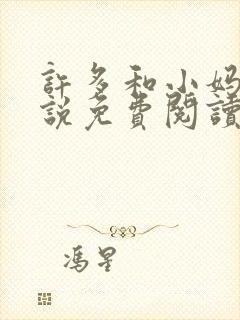 許多和小妈
説免費閱讀
馮星